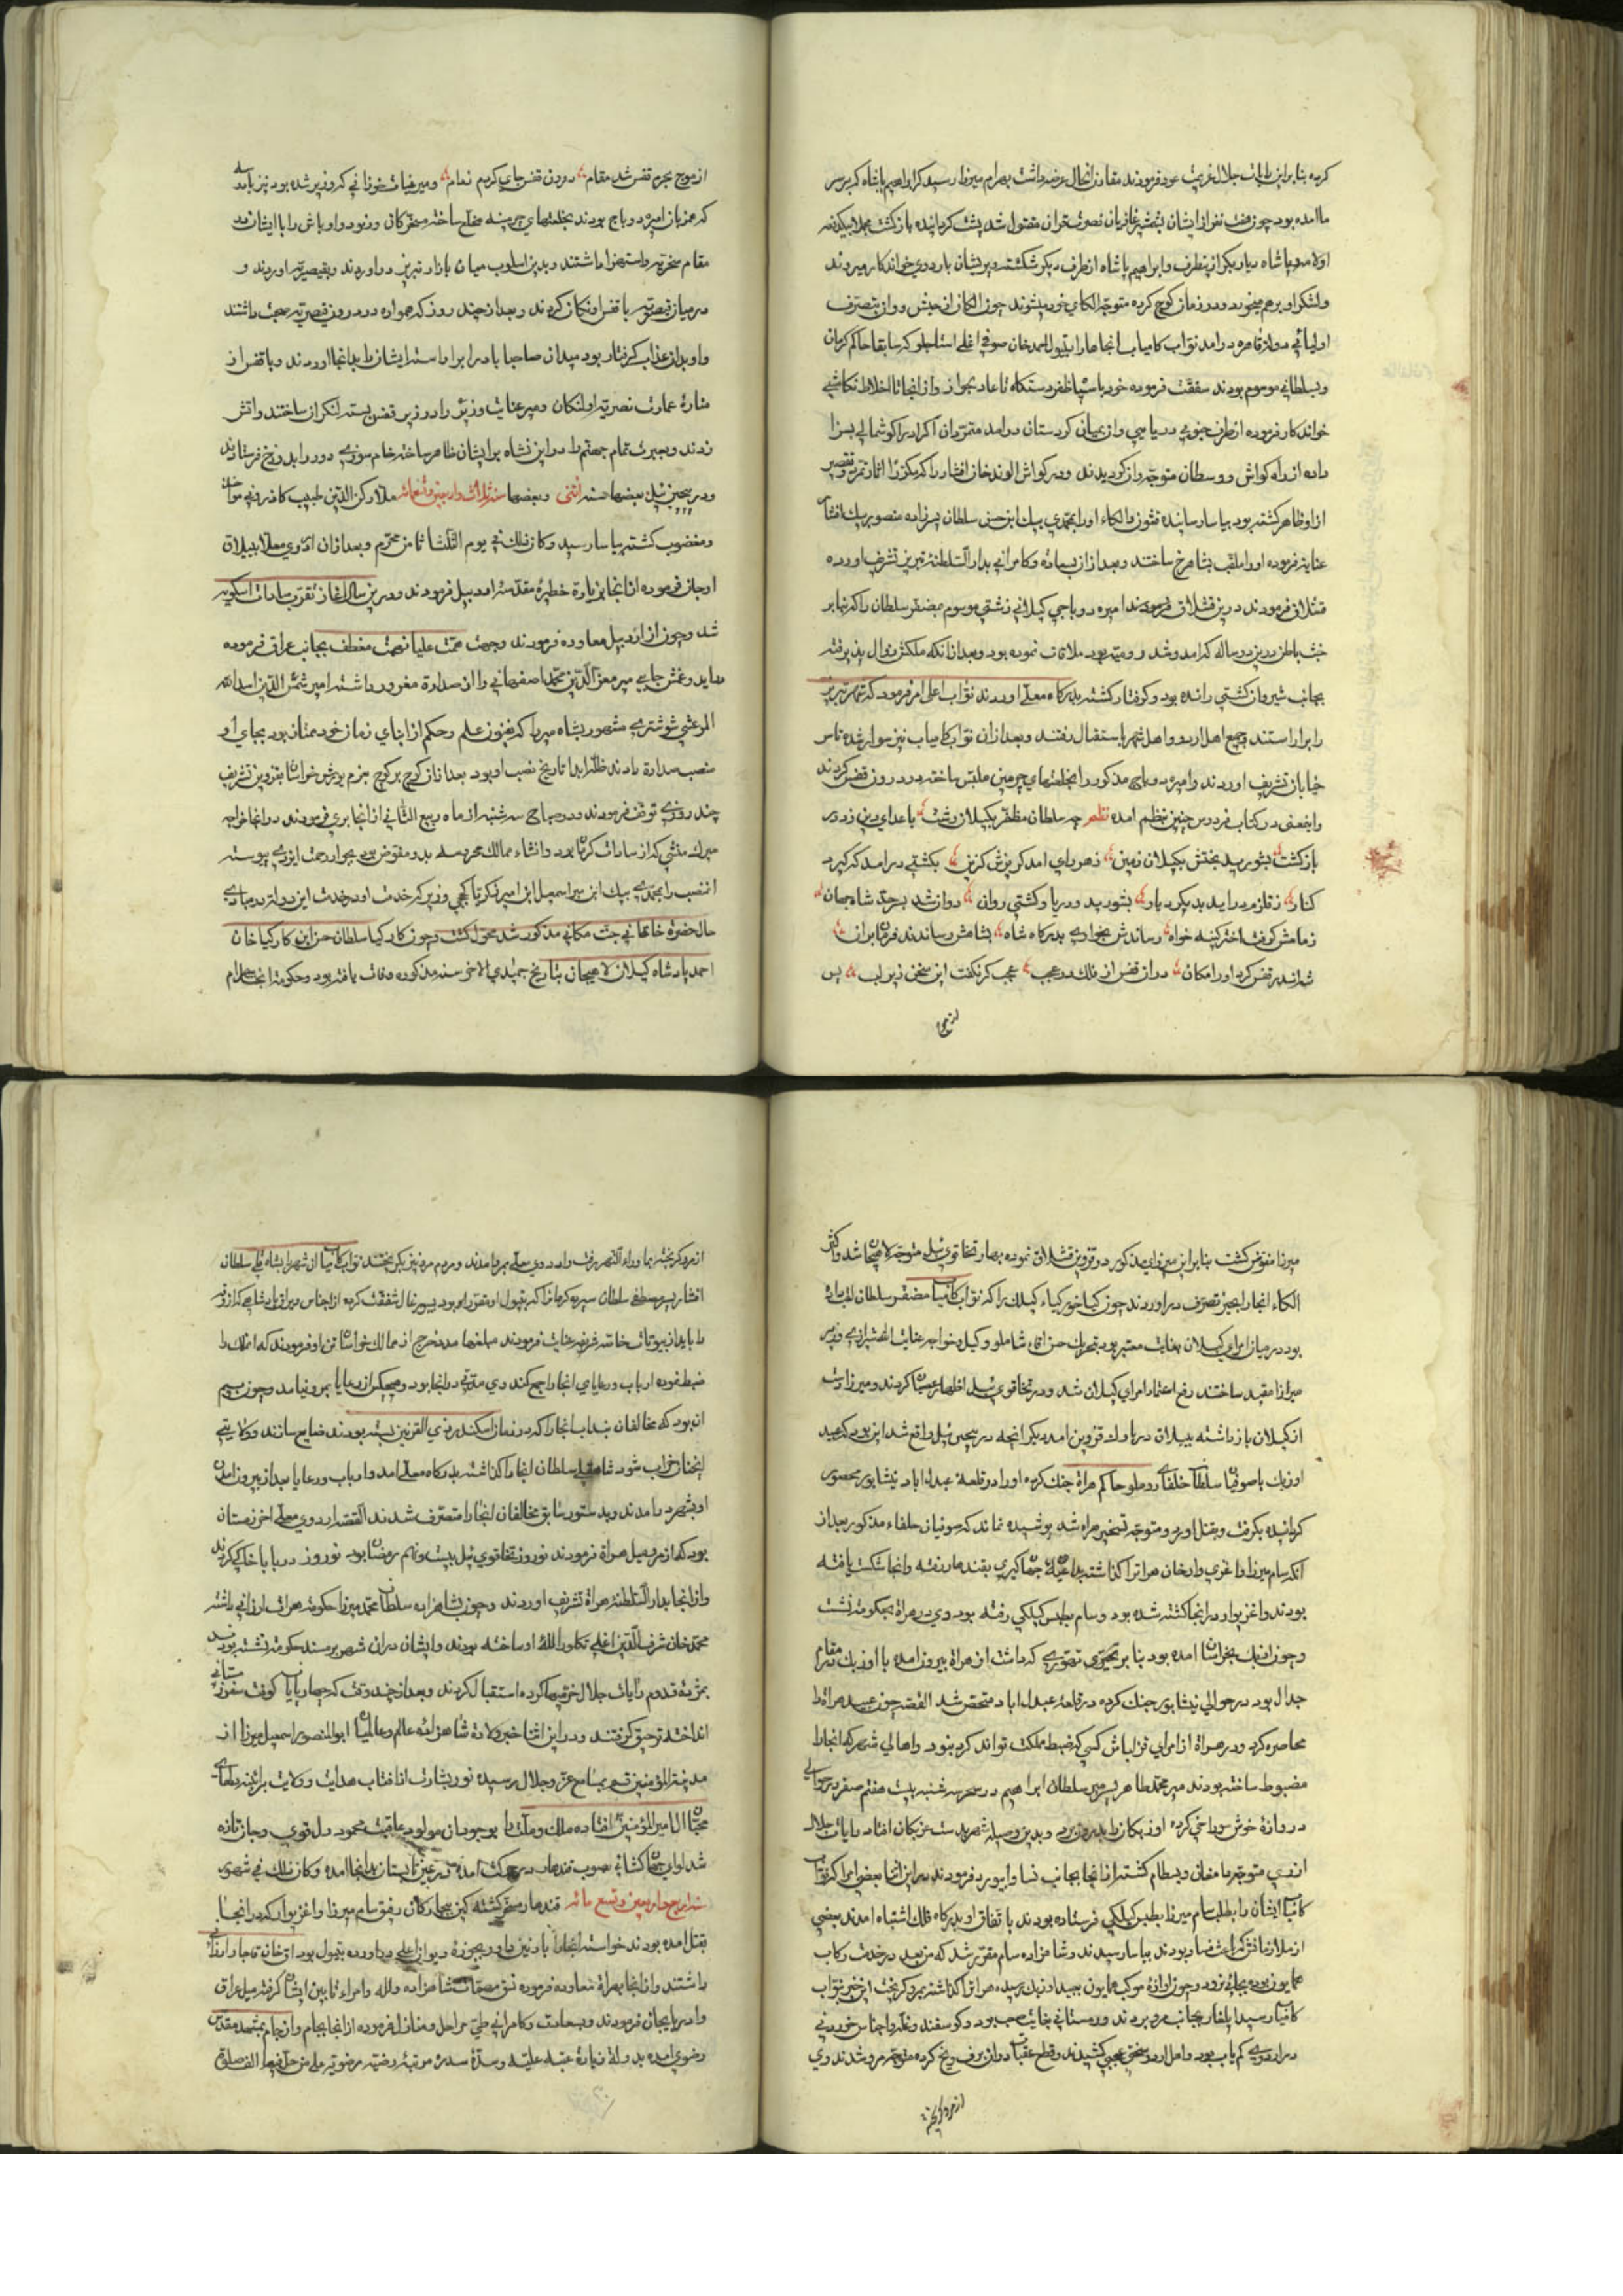 کرده بنابراین رایات جلال عود فرمودند مقارن انحال عرضه داشت بهرام میرزا رسید که ابراهیم پاشاه که بر سر
ما امده بود چون هفت نفر از ایشان بشمشیر غازیان نصرت مقتول شد پشت کردانیده بازکشت
اولامه و پاشاه دیاربکر ازینطرف و ابراهیم پاشاه از طرف دیکر شکسته و پریشان باردوی خواندکار میروند
ولشکر او برهم میخورد و در زمان کوچ کرده متوجه الکای خود میشوند چون الکا ارجیش و وان بتصرف
اولیائی دولت قاهره درامد نواب کامیاب انجاها را بتیول احمد خان صوفی اغلی استاجلو که سابقا حاکم کرمان
و بسلطانی موسوم بودند شفقت فرموده خود با سپاه ظفر دستکاه تا عادیجواز و از انجا تا اخلاط
خواندکار فرموده از طرف جنوبی دریا بین وان بمیان کردستان درامد متمردان اکراد را کوشمالی بسزا
داده از راه کواش و وسطان متوجه وان کردیدند و در کواش الوند خان افشار را که مکررا اثار تمرد و تقصیر
از او ظاهر کشته بود بیاسا رسانیده قشون و الکاء او را بمحمدی بیک ابن حسن سلطان پسرزاده منصور بیک افشار
عنایت فرموده او را ملقب بشاهرخ ساختند و بعد از ان بسعادة و کامرانی بدار السلطنة تبریز تشریف اورده
قشلاق فرمودند درین قشلاق امیره دوباجی کیلانی رشتی موسوم بمظفر سلطان را که بنابر
خبث باطن درین دو ساله که امد و شد رومیه بود ملاقات نموده بود و بعد از انکه ملکش زوال پذیرفته
بجانب شیروان کشتی رانده بود و کرفتار کشته بدرکاه معلی اوردند نواب اعلی امر فرمود که شهر تبریز
را برآراستند و جمیع اهل اردو و اهل شهر باستقبال رفتند و بعد از ان نواب کامیاب نیز سوار شده تا سر
خیابان تشریف اوردند و امیره دوباج مذکور را بخلعتهای چرمین ملبس ساخته در درون قفس کردند
و اینمعنی در کتاب فردوس چنین بنظم امده نظم چه سلطان مظفر بکیلان رشت باعدای دین زود
بازکشت بشورید بختش بکیلان زمین زهر رای امد کریزش کزین بکشتی درامد که کیرد
کنار ز قلزم دراید بدیکر دیار بشورید دریا و کشتی روان روان شد بر حد شاه جهان
زمانش کرفت اختر کینه خواه رساندش بخواری بدرکاه شاه بشامش رساندند فرمان بران
شهانسه قفس کرد او را مکان دران قفس از فلک در عجب عجب کر نکفت این سخن زیر لب پس
از موج
از موج بحرم قفس شد مقام درون قفس جای کرم نعام و میر غیاث خوزانی که وزیر شده بود نیز
که همزبان امیره دوباج بودند بخلعتهای چرمینه مخلع ساخته مسخرکان و رنود و اوباش را با ایشان در
مقام سخریه و استهزا داشتند و بدین اسلوب میان بازار تبریز در اورده و بقیصریه اوردند و
در میان قیصریه با قفس اونکان کردند و بعد از چند روز که همواره در درون قیصریه صحبت داشتند
و او بدان عذاب کرفتار بود میدان صاحبا باد را براراسته ایشان را بدانجا اوردند و با قفس از
مناره عمارت نصریه اونکان و میر عنایت وزیر را در زیر قفس بسته لنکر ان ساختند و اتش
زدند و بعبرت تمام جهنم را در این نشاه بر ایشان ظاهر ساخته خام سوز بدوزخ فرستادند
و در پیچین ئیل بعضها سنه اثنی و بعضها سنه ثلاث و اربعین و تسعمائه ملا رکن الدین طبیب کازرونی مواخذ
و مغضوب کشته بیاسا رسید و کان ذلک فی یوم الثلثا ثامن محرم و بعد از ان اردوی معلا بییلاق
اوجان فرموده از انجا بزیارة خطیره مقدسه اردبیل فرمودند و درین سال اغاز تقرب سادات اسکویه
شد و چون از اردبیل معاوده فرمودند وجهت همت علیا نهضت معطف بجانب عراق فرموده
میر معز الدین محمد اصفهانی را از صدارة معزور داشته امیر شمس الدین اسدالله
المرعشی شوشتری مشهور بشاه میر را که بفنون علم و حکم از ابنای زمان خود ممتاز بود بجای او
منصب صداره دادند ظله ابدا تاریخ نصب او بود بعد از ان کوچ بر کوچ بعزم یورش خراسان بقزوین تشریف
چند روزی توقف فرمودند و در صباح سه شنبه از ماه ربیع الثانی از انجا بری فرمودند در انجا خواجه
میرک منشی که از سادات کرمان بود و انشاء ممالک محروسه بدو مفوض بود بجوار رحمت ایزدی پیوسته
انمنصب را بمحمدی بیک ابن میر اسمعیل ابن امیر زکریا کججی وزیر که خدمت او در خدمت این دولت در مبادی
حال حضرة خاقانی جنت مکانی مذکور شد محول کشت و چون کارکیا سلطان حسن ابن کارکیا خان
احمد پادشاه کیلان لاهیجان بتاریخ جمیدی الاخر سنه مذکوره وفات یافته بود و حکومة انجا بهرام
میرزا مفوض کشت بنابراین میرزای مذکور در قزوین قشلاق نموده بهار تخاقوی ئیل متوجه لاهیجان شد و اکثر
الکاء انجا را بحیز تصرف دراوردند چون کیا خور کیاء کیلک را که نواب کامیاب مظفر سلطان لقب داده
بود در میان امرای کیلان بغایت معتبر بود بتحریک حسن اقاء شاملو وکیل و خواجه عنایت وزیر
میرزا مقید ساختند رفع اعتماد امرای کیلان شد و در تخاقوی ئیل اظهار عصیان کردند و میرزا دست
از کیلان بازداشته بییلاق درباوک قزوین امد دیکر انچه در پیچین ئیل واقع شد این بود که عبید
اوزبک با صوفیان سلطان خلفای روملو حاکم هراة جنک کرده او را در قلعه عبدل اباد نیشابور محصور
کردانیده بکرفت و بقتل اورد و متوجه تسخیر هراه شد پوشیده نماند که صوفیان خلفاء مذکور بعد از
انکه سام میرزا و اغزی وارخان هراترا کذاشته بداعیه جهانکیری بقندهار رفته و انجا شکست یافته
بودند و اغزیوار در انجا کشته شده بود و سام بطبس کیلکی رفته بود وی در هراة بحکومة نشست
و چون اوزبک بخراسان امده بود بنابر تصوری که داشت از هراة بیرون امده با اوزبک در مقام
جدال بود در حوالی نیشابور جنک کرده در قلعه عبدل اباد متحصن شد القصه چون عبید هراة را
محاصره کرد و در هراة از امرای قزلباش کسی که ضبط مملکت تواند کرد نبود و اهالی شهر که انجا را
مضبوط ساخته بودند میر محمد طاهر پسر میر سلطان ابراهیم در سحر سه شنبه بیست هفتم صفر در حوالی
دروازه خوش سوراخی کرده اوزبکان را بدرون برد و بدین وسیله شهر بدست اوزبکان افتاد رایات جلال
از ری متوجه دامغان و بسطام کشته از انجا بجانب نسا و ابیورد فرمودند در این اثنا بعضی امرا که نواب
کامیاب ایشان را بطلب سام میرزا بطبس کیلکی فرستاده بودند باتفاق او بدرکاه فلک اشتباه امدند بعضی
از ملازمانش که باعث فساد بودند بیاسا رسیدند و شاهزاده سام مقرر شد که من بعد در خدمت رکاب
همایون بوده بجائی نرود و چون اوازه موکب همایون بعبید اوزبک رسیده هرات را کذاشته بمرو کریخت این خبر بنواب
کامیاب رسید ایلغار بجانب مرو بردند و زمستانی بغایت صعب بود و کوسفند و غله و اجناس خوردنی
در اردوی کم یاب بود و اهل اردو سختی عجبی کشیدند و قطع عقبات دران برف و یخ کرده متوجه مرو شدند وی
از مرو کریخته
از مرو کریخته بماوراء النهر رفت و اردوی معلی بمرو درامدند و مردم مرو نیز بکریختند نواب کامیاب انشهر را بشاه قلی سلطان
افشار پسر مصطفی سلطان سپرده کرمان را که بتیول او مقرر بود بسیورغال شفقت کرده از اجناس و یراق پادشاهی که از
را باید از بیوتات خاصه شریفه عنایت فرمودند مبلغها مدد خرج از ممالک خراسان باو فرمودند که انملک را
ضبط نموده ارباب و رعایای انجا را جمع کند وی مدتی در انجا بود و هیچکس از رعایا بمرو نیامد و چون بیم
ان بود که مخالفان بند اب انجا را که در زمان اسکندر ذی القرنین بسته بودند ضایع سازند و ولایتی
انچنان خراب شود شاه قلی سلطان انجا را کذاشته بدرکاه معلی امد و ارباب و رعایا بعد از بیرون امدن
او بشهر درامدند و بدستور سابق مخالفان انجا را متصرف شدند القصه اردوی معلی اخر زمستان
بود که از مرو میل هراة فرمودند نوروز تخاقوی ئیل بیست و نهم رمضان بود نوروز در بابا خاکی کردند
و از انجا بدار السلطنة هراة تشریف اوردند و چون بشاهزاده سلطان محمد میرزا حکومة هرات ارزانی داشته
محمد خان شرف الدین اغلی تکلو را للهٔ او ساخته بودند و ایشان در ان شهر بر مسند حکومة نشسته بودند
بمژده قدوم رایات جلال خرمیها کرده استقبال کردند و بعد از چند وقت که چهارپایان کوفت سفر زمستانی
انداخته ترقی کرفتند و در این اثنا خبر ولادة شاهزاده عالم و عالمیان ابو المنصور اسمعیل میرزا از
مدینة المؤمنین قم بمسامع عز و جلال رسیده نور بشارت ان افتاب هدایت و ولایت بر ائینه دلهای
محبان ال امیر المؤمنین افتاده ملک و ملت را بوجود ان مولود عاقبت محمود دل قوی و جان تازه
شد لوای جهانکشائی بصوب قندهار در حرکت امده در عین تابستان بدانجا امده و کان ذلک فی شهور
سنه اربع و اربعین و تسع مائه قندهار مسخر کشته کین بیچارکان رفیق سام میرزا و اغزیوار که در انجا
بقتل امده بودند خواسته انجا را با زمین داور بحوزه دیوان اعلی دراورده بتیول بوداق خان قاجار ارزانی
داشتند و از انجا بهراة معاوده فرموده نسق مهمات شاهزاده و لله و امراء تابین ایشان کرفته میل عراق
و اذربایجان فرمودند و بسعادت و کامرانی طی مراحل و منازل فرموده از انجا بجام و از جام بمشهد مقدس
رضوی امده بدولة زیارة عتبه علیه و سدهٔ سدره مرتبه رضیه مرضویه علی من حل فیها الف صلوة